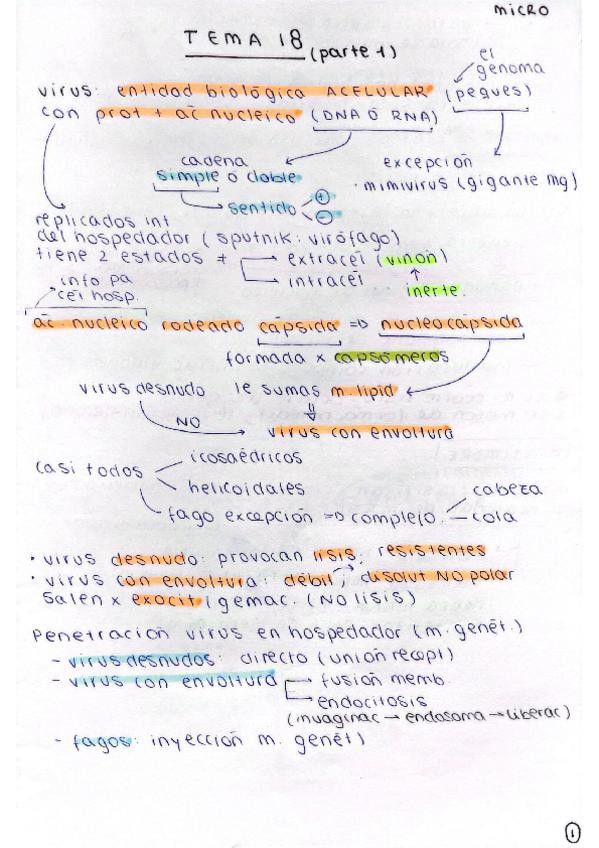 MICRO
TEMA 18 (parte 1)
el
genoma
virus: entidad biológica ACELULAR (peques)
con prot + ac nucleico (DNA Ó RNA)
cadena
simple ó doble
excepción
· mimivirus (gigante mg)
sentido + -
replicados int
del hospedador (sputnik: virófago)
tiene 2 estados + extracel (virión)
intracel inerte.
info pa
cél hosp.
ac. nucleico rodeado cápsida => nucleocápsida
formada x capsómeros
virus desnudo le sumas m. lipid
NO
virus con envoltura
casi todos
icosaédricos
helicoidales
fago excepción => complejo
cabeza
cola
· virus desnudo: provocan lisis. resistentes
· virus con envoltura: débil, disolut NO polar
salen x exocit / gemac. (NO lisis)
Penetración virus en hospedador (m. genét.)
- virus desnudos: directo (unión recept)
- virus con envoltura
fusión memb.
endocitosis
(invaginac → endosoma → liberac)
- fagos: inyección m. genét)
1